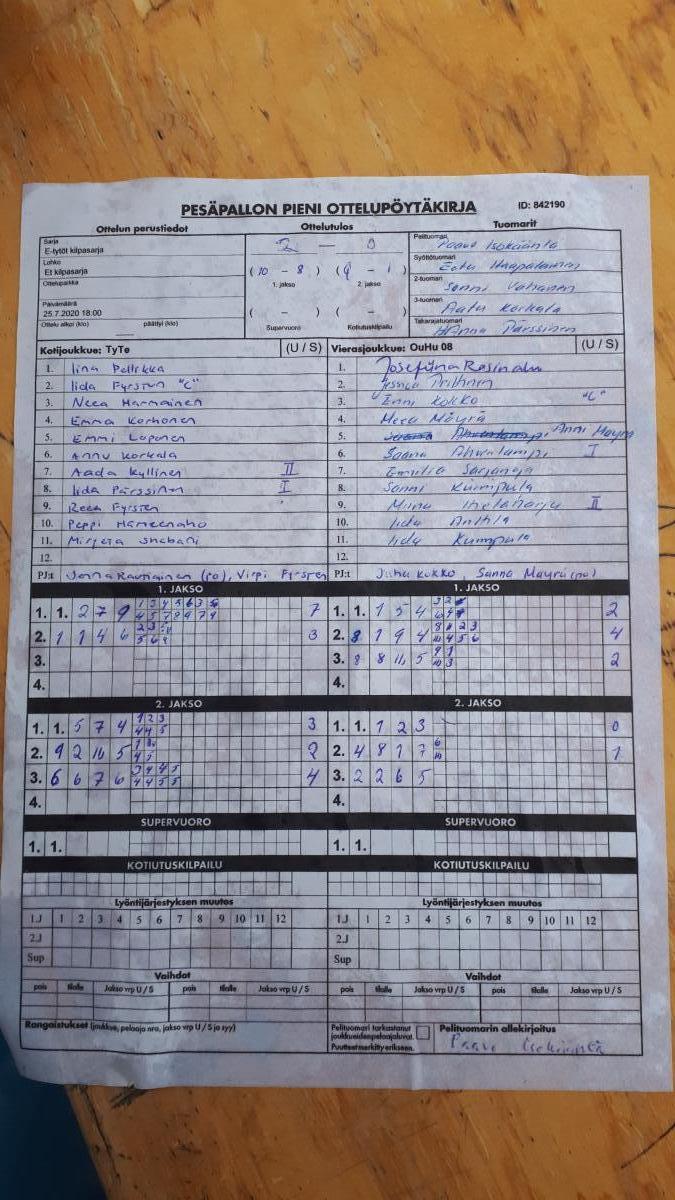 PESÄPALLON PIENI OTTELUPÖYTÄKIRJA ID: 842190
Ottelun perustiedot Ottelutulos Tuomarit
Sarja
E-tytöt kilpasarja
Lohko
Et kilpasarja
Ottelupaikka
Päivämäärä
25.7.2020 18:00
Ottelu alkoi (klo) päättyi (klo)
2 — 0
(10 - 8) (9 - 1)
1. jakso 2. jakso
( - ) ( - )
Supervuoro Kotiutuskilpailu
Pelituomari Paavo Isokääntä
Syöttötuomari Eetu Haapalainen
2-tuomari Sanni
3-tuomari Aatu Korkala
Takarajatuomari Hanna Pärssinen
Kotijoukkue: TyTe (U / S) Vierasjoukkue: OuHu 08 (U / S)
1. Iina Pellikka
2. Iida Fyrsten "C"
3. Neea Harmainen
4. Emma Korhonen
5. Emmi Loponen
6. Annu Korkala
7. Aada Kyllinen II
8. Iida Pärssinen I
9. Reea Fyrsten
10. Peppi Hämeenaho
11. Mirjeta Shabani
12.
PJ:t Jonna Rautiainen (po), Virpi Fyrsten
1. Josefiina Rasinaho
2.
3. Enni Kokko "C"
4. Neea Mäyrä
5. Anni Mäyrä
6. Saana Ahvenlampi I
7. Emilia
8. Sanni Kumpula
9. Miina II
10. Iida Anttila
11. Iida Kumpula
12.
PJ:t Juha Kokko, Sanna Mäyrä (po)
1. JAKSO 1. JAKSO
1. 1. 2 7 9 7
2. 1 1 4 6 3
3.
4.
1. 1. 1 5 4 2
2. 8 1 9 4 4
3. 8 8 11 5 2
4.
2. JAKSO 2. JAKSO
1. 1. 5 7 4 3
2. 9 2 10 5 2
3. 6 6 7 6 4
4.
1. 1. 1 2 3 0
2. 4 8 1 7 1
3. 2 2 6 5
4.
SUPERVUORO SUPERVUORO
1. 1. 1. 1.
KOTIUTUSKILPAILU KOTIUTUSKILPAILU
Lyöntijärjestyksen muutos Lyöntijärjestyksen muutos
1.J 1 2 3 4 5 6 7 8 9 10 11 12 1.J 1 2 3 4 5 6 7 8 9 10 11 12
2.J 2.J
Sup Sup
Vaihdot Vaihdot
pois tilalle Jakso vrp U / S pois tilalle Jakso vrp U / S pois tilalle Jakso vrp U / S pois tilalle Jakso vrp U / S
Rangaistukset (joukkue, pelaaja nro, jakso vrp U / S ja syy)
Pelituomari tarkastanut
joukkueiden pelaajaluvat.
Puutteet merkitty erikseen.
Pelituomarin allekirjoitus
Paavo Isokääntä